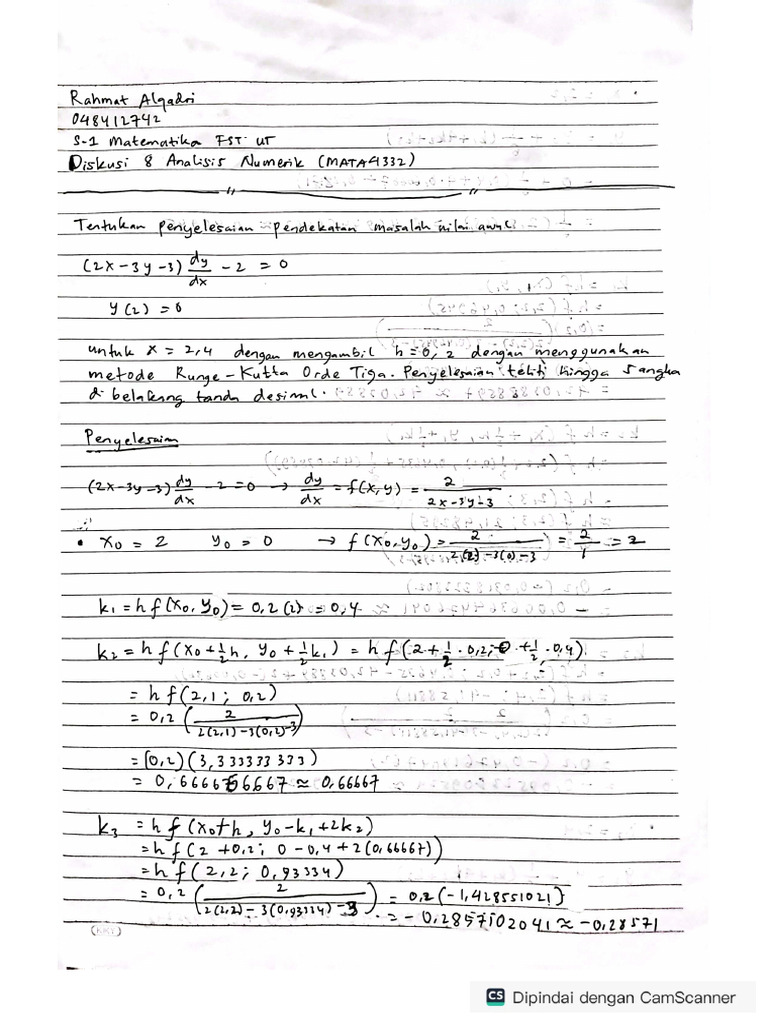 Rahmat Alqadri
048412742
S-1 Matematika FST UT
Diskusi 8 Analisis Numerik (MATA4332)
Tentukan penyelesaian pendekatan masalah nilai awal
(2x-3y-3) dy/dx - 2 = 0
y(2) = 0
untuk x = 2,4 dengan mengambil h=0,2 dengan menggunakan
metode Runge-Kutta Orde Tiga. Penyelesaian teliti hingga 5 angka
di belakang tanda desimal.
Penyelesaian
(2x-3y-3) dy/dx - 2 = 0 → dy/dx = f(x,y) = 2/(2x-3y-3)
• x0 = 2 y0 = 0 → f(x0,y0) = 2/(2(2)-3(0)-3) = 2/1 = 2
k1 = h f(x0, y0) = 0,2 (2) = 0,4
k2 = h f(x0+½h, y0+½k1) = h f(2+½·0,2; 0+½·0,4)
= h f(2,1; 0,2)
= 0,2 (2/(2(2,1)-3(0,2)-3))
= (0,2)(3,333333333)
= 0,6666666667 ≈ 0,66667
k3 = h f(x0+h, y0-k1+2k2)
= h f(2+0,2; 0-0,4+2(0,66667))
= h f(2,2; 0,93334)
= 0,2 (2/(2(2,2)-3(0,93334)-3)) = 0,2(-1,428551021)
= -0,2857102041 ≈ -0,28571
(KKY)
CS Dipindai dengan CamScanner